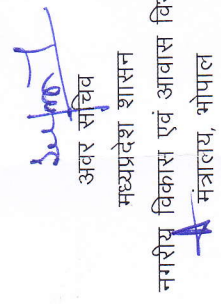 अवर सचिव
मध्यप्रदेश शासन
नगरीय विकास एवं आवास वि
मंत्रालय, भोपाल